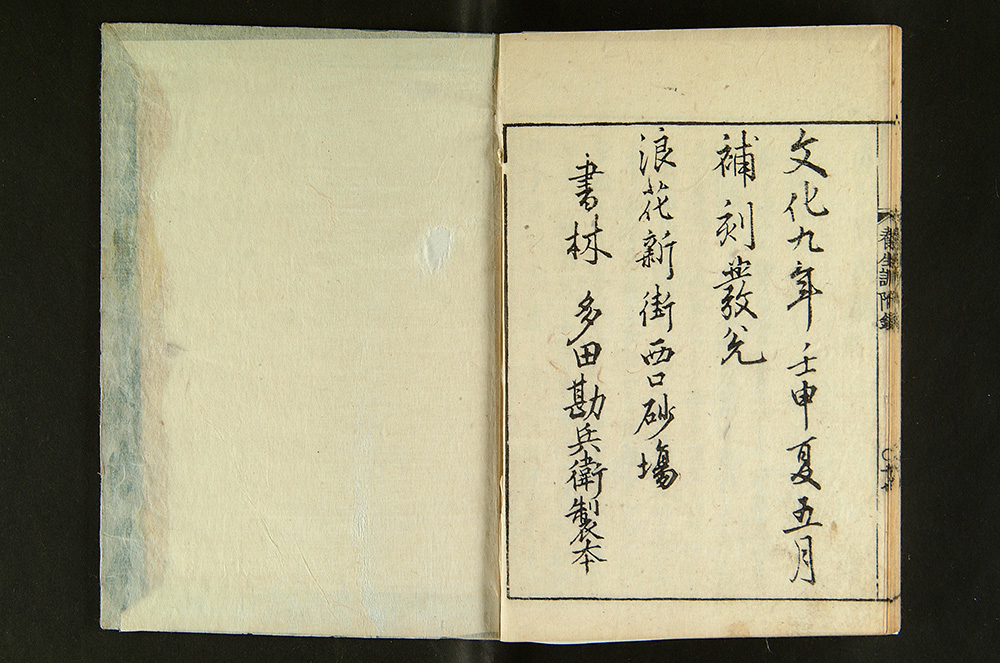 文化九年壬申夏五月
補刻發兌
浪花新街西口砂場
書林　多田勘兵衛製本
養生訓附錄